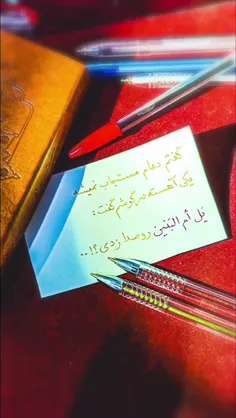 گفتم دعام مستجاب نمیشه
یکی آهسته در گوشم گفت:
یَل أم البَنین رو صدا زدی؟!...